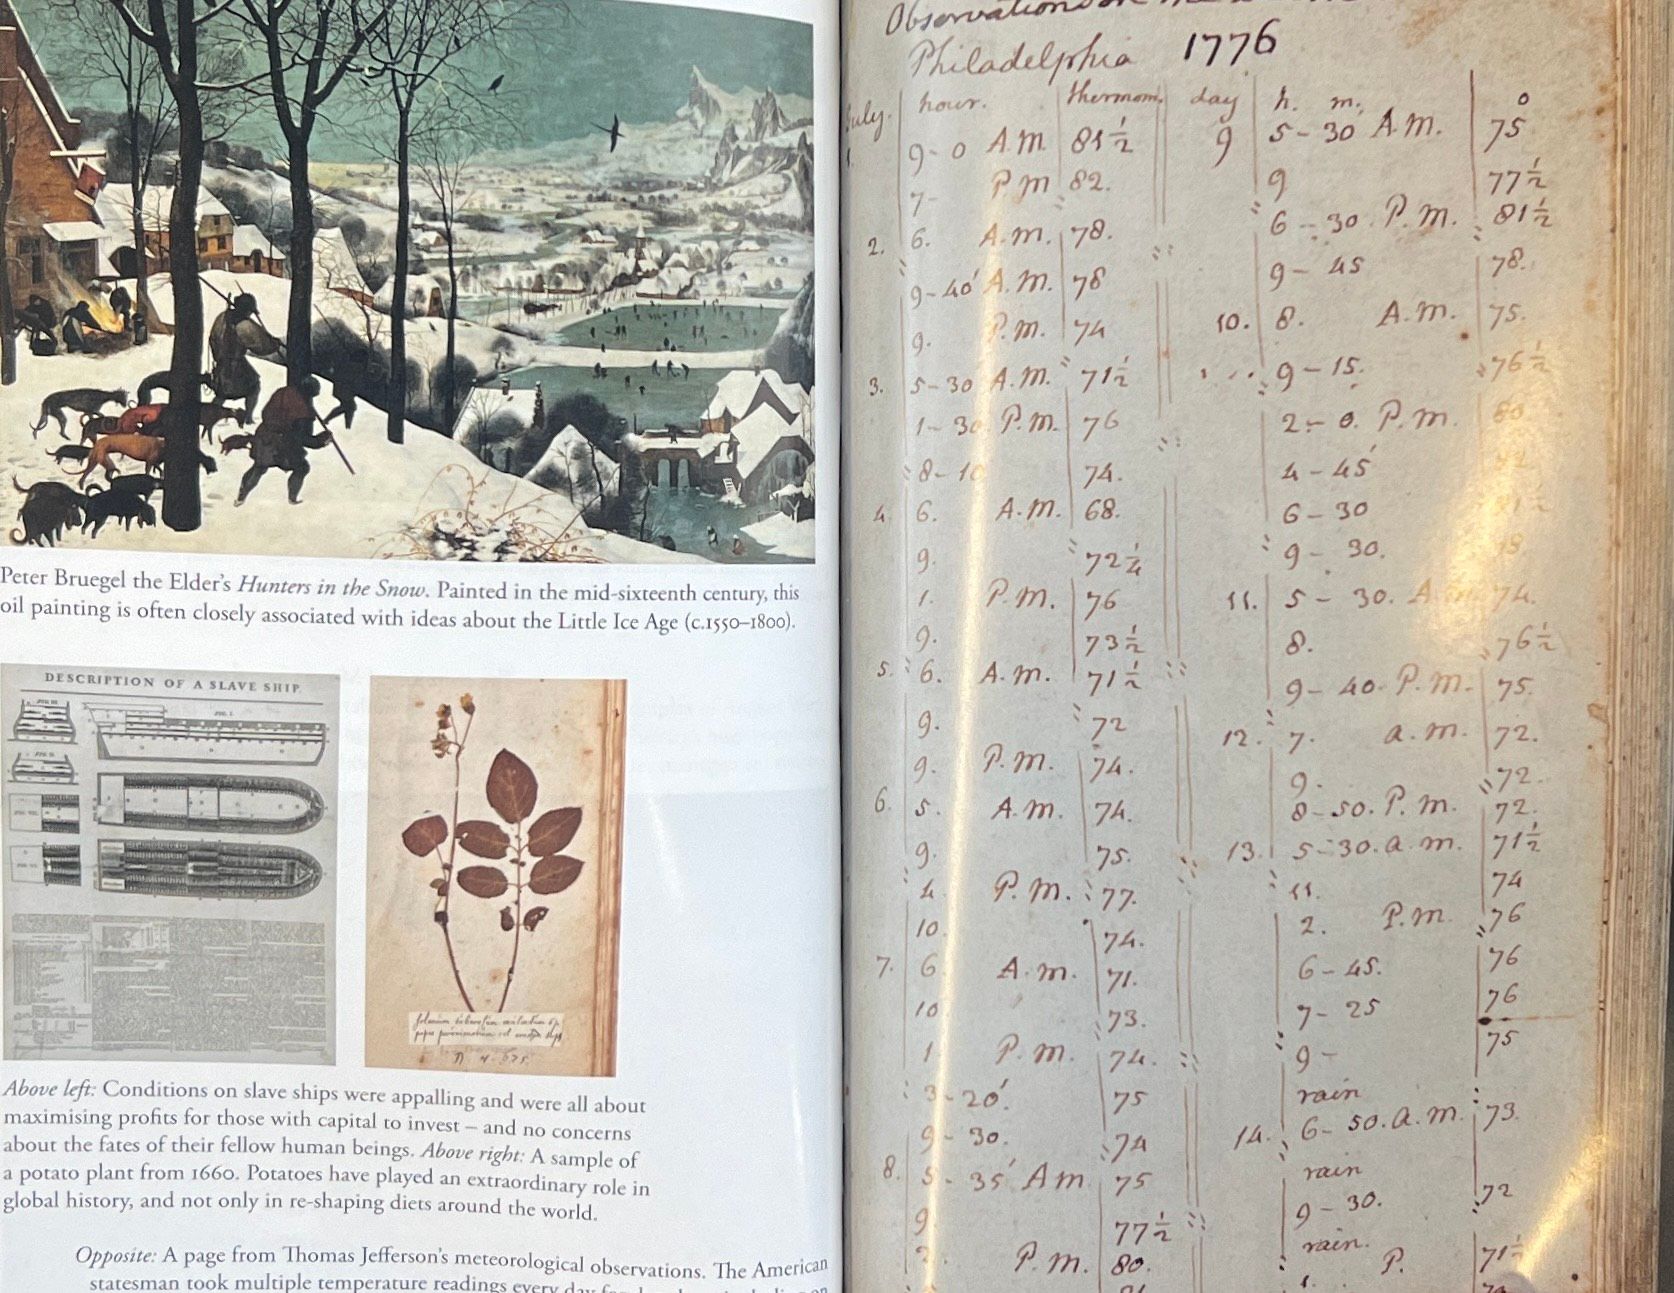 Peter Bruegel the Elder's Hunters in the Snow. Painted in the mid-sixteenth century, this
oil painting is often closely associated with ideas about the Little Ice Age (c.1550–1800).
DESCRIPTION OF A SLAVE SHIP.
Above left: Conditions on slave ships were appalling and were all about
maximising profits for those with capital to invest – and no concerns
about the fates of their fellow human beings. Above right: A sample of
a potato plant from 1660. Potatoes have played an extraordinary role in
global history, and not only in re-shaping diets around the world.
Opposite: A page from Thomas Jefferson's meteorological observations. The American
statesman took multiple temperature readings every day
Observations
Philadelphia 1776
July. hour. thermom.
9-0 A.M 81½
7- P.M 82.
2. 6. A.m. 78.
9-40′ A.m. 78
9. P.m. 74
3. 5-30 A.m. 71½
1-30 P.m. 76
8-10 74.
4. 6. A.m. 68.
9. 72¼
1. P.m. 76
9. 73½
5. 6. A.m. 71½
9. 72
9. P.m. 74.
6. 5. A.m. 74.
9. 75.
4. P.m. 77.
10. 74.
7. 6. A.m. 71.
10 73.
1 P.m. 74.
3-20′. 75
9-30. 74
8. 5-35′ Am 75
9. 77½
P.m. 80.
day h. m. o
9 5-30 A.m. 75
9 77½
6-30. P.m. 81½
9-45 78.
10. 8. A.m. 75.
9-15. 76½
2-0. P.m. 80
4-45′
6-30
9-30.
11. 5-30. A.m. 74.
8. 76½
9-40. P.m. 75.
12. 7. a.m. 72.
9. 72.
8-50. P.m. 72.
13. 5-30. a.m. 71½
11. 74
2. P.m. 76
6-45. 76
7-25 76
9- 75
rain
14. 6-50. a.m. 73.
rain
9-30. 72
rain.
1. P. 71½